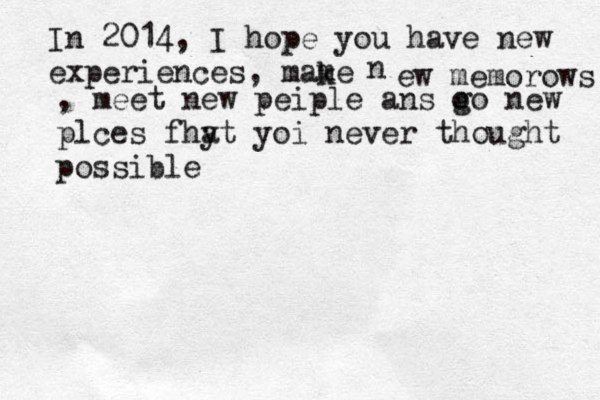 In 2014, I hope you have new
experiences, make n ew memorows
, meet new peiple ans go new
plces fhat yoi never thought
possible